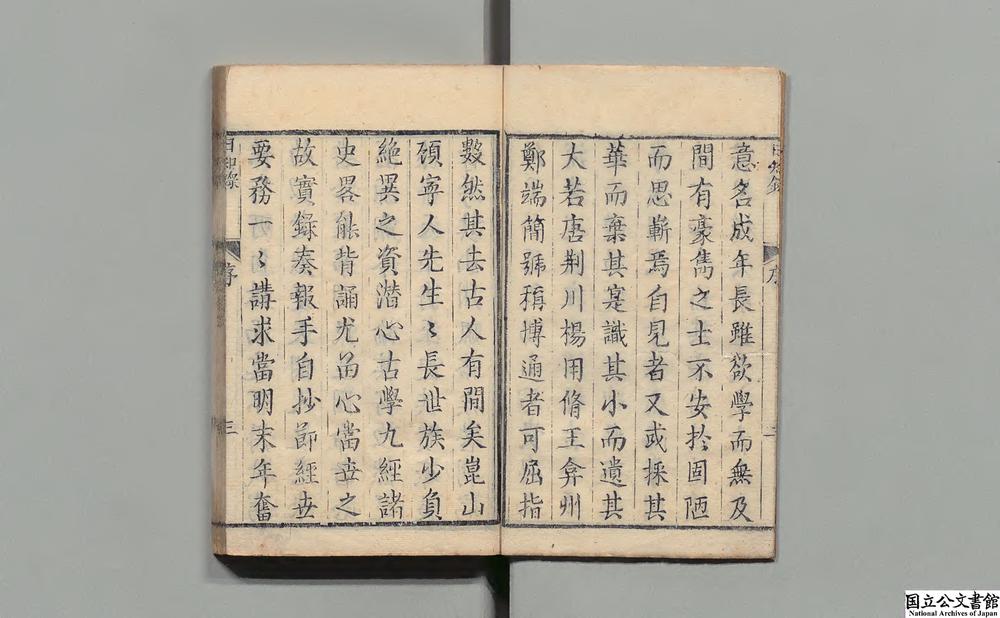 意名成年長雖欲學而無及
間有豪雋之士不安於固陋
而思嶄焉自見者又或採其
華而棄其寔識其小而遺其
大若唐荆川楊用脩王弇州
鄭端簡號稱博通者可屈指
數然其去古人有間矣崑山
頋寧人先生〻長世族少負
絶異之資潜心古學九經諸
史畧能背誦尤畄心當世之
故實録奏報手自抄節經世
要務一〻講求當明末年奮
日知錄
序
三
国立公文書館
National Archives of Japan